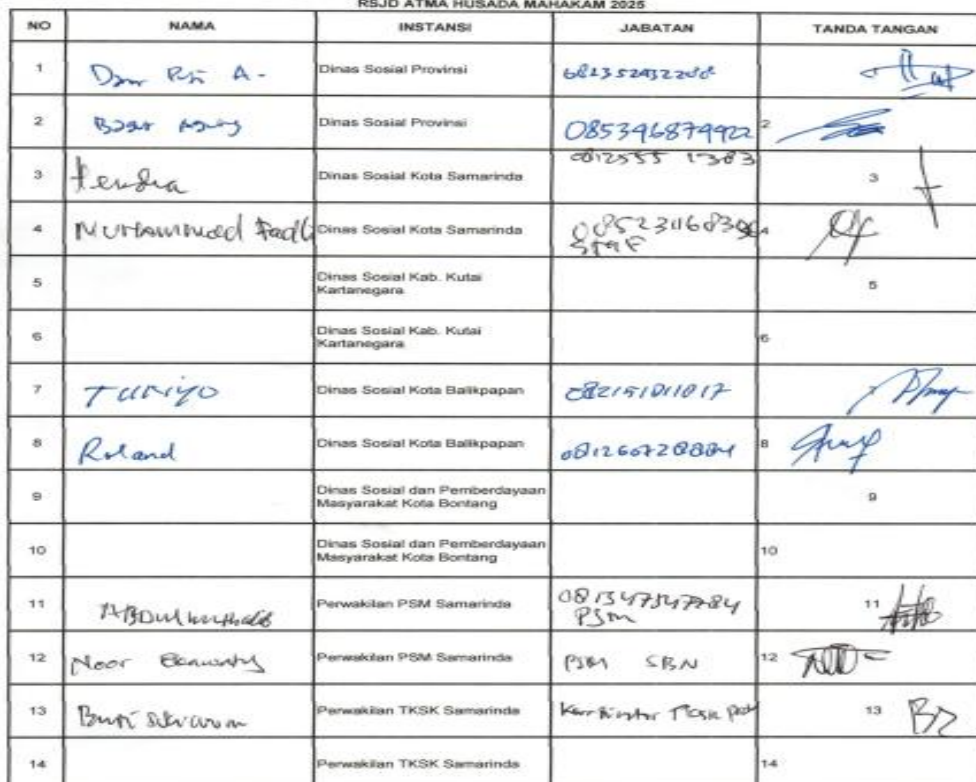 RSJD ATMA HUSADA MAHAKAM 2025
NO NAMA INSTANSI JABATAN TANDA TANGAN
1 A. Dinas Sosial Provinsi
2 Dinas Sosial Provinsi 085346874922 2
3 Hendra Dinas Sosial Kota Samarinda 0812555 1383 3
4 Muhammad Fadli Dinas Sosial Kota Samarinda
Staf
5 Dinas Sosial Kab. Kutai
Kartanegara 5
6 Dinas Sosial Kab. Kutai
Kartanegara 6
7 Dinas Sosial Kota Balikpapan 082151011017
8 Roland Dinas Sosial Kota Balikpapan 8
9 Dinas Sosial dan Pemberdayaan
Masyarakat Kota Bontang 9
10 Dinas Sosial dan Pemberdayaan
Masyarakat Kota Bontang 10
11 Perwakilan PSM Samarinda 081347547784 11
PSM
12 Noor Perwakilan PSM Samarinda PSM SBN 12
13 Perwakilan TKSK Samarinda 13
14 Perwakilan TKSK Samarinda 14